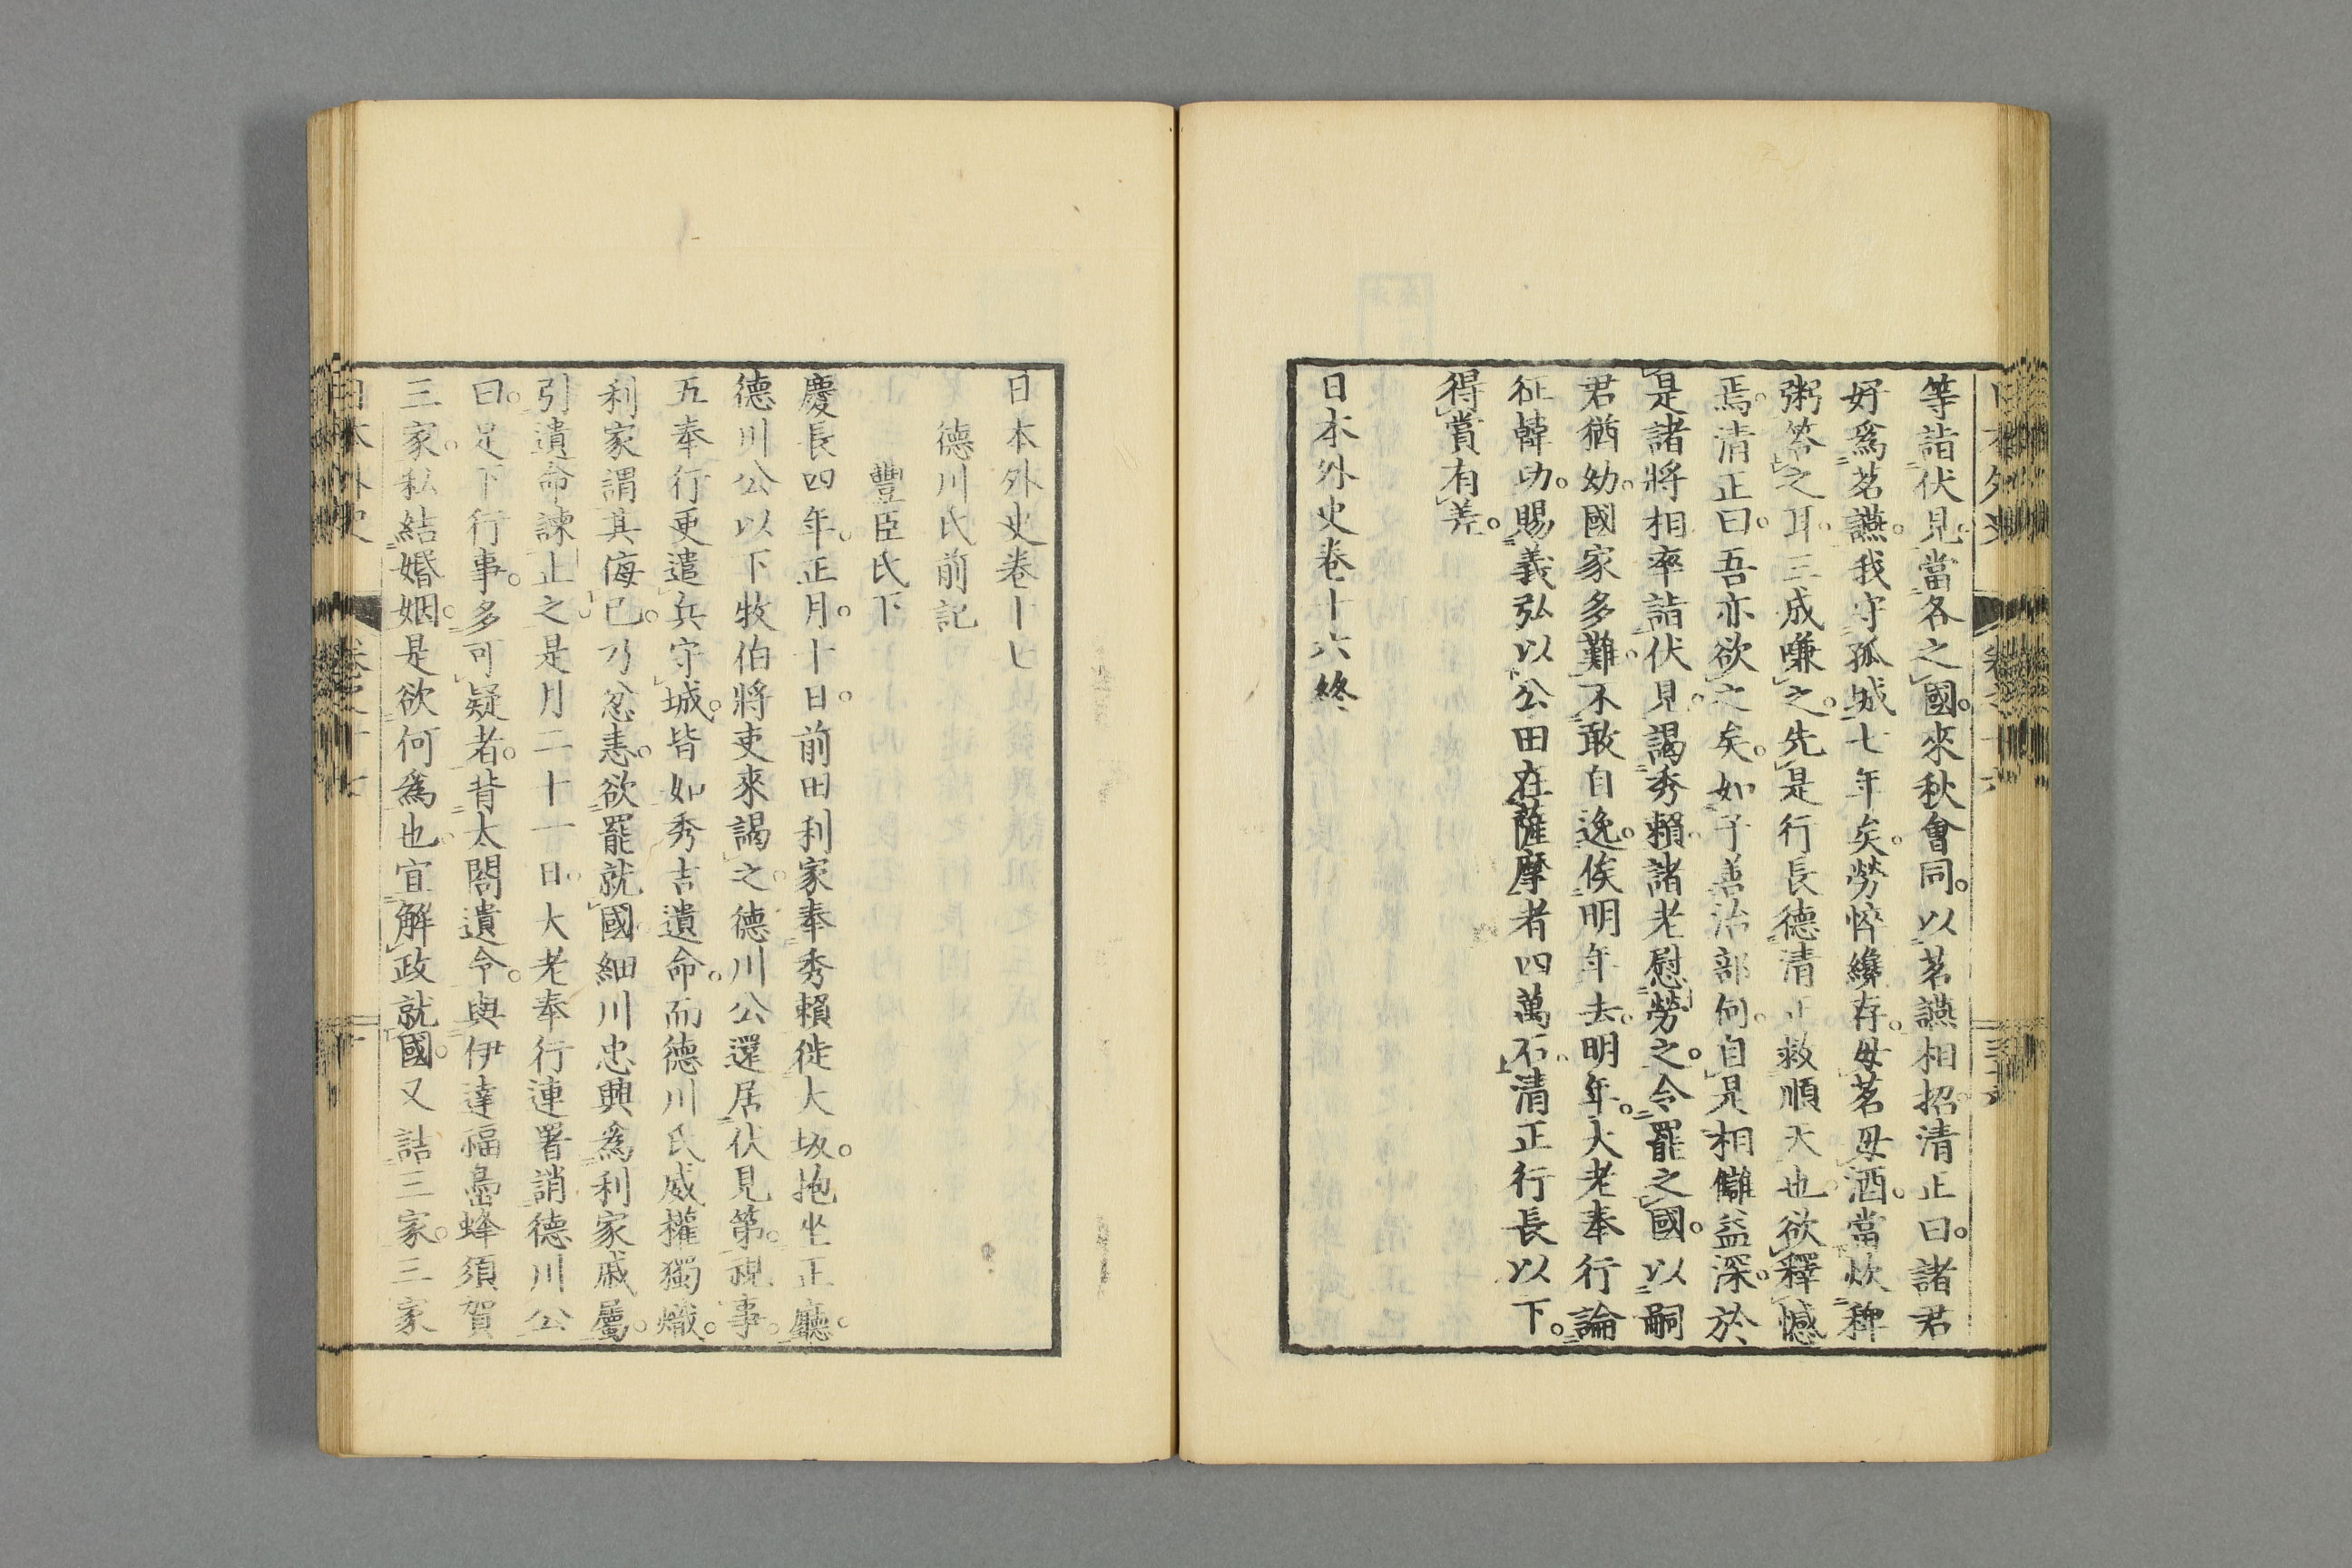 等詣伏見當各之國。來秋會同。以茗讌相招清正曰。諸君
好爲茗讌。我守孤城七年矣。勞悴纔存。毋茗毋酒。當炊稗
粥答之耳。三成嗛之。先是行長德清正救順天也。欲釋憾
焉。清正曰。吾亦欲之矣。如子善治部何。自是相讎益深。於
是諸將相率詣伏見。謁秀賴。諸老慰勞之。令罷之國。以嗣
君猶幼。國家多難。不敢自逸。俟明年去。明年。大老奉行論
征韓功。賜義弘以公田在薩摩者四萬石。清正行長以下。
得賞有差。
日本外史卷十六終
日本外史卷十七
德川氏前記
豐臣氏下
慶長四年。正月。十日。前田利家奉秀賴徙大坂。抱坐正廳。
德川公以下牧伯將吏來謁之。德川公還居伏見第。視事。
五奉行更遣兵守城。皆如秀吉遺命。而德川氏威權獨熾。
利家謂其侮己。乃忿恚。欲罷就國。細川忠興爲利家戚屬。
引遺命諫止之。是月二十一日。大老奉行連署誚德川公
曰。足下行事。多可疑者。背太閤遺令。與伊達福島蜂須賀
三家。私結婚姻。是欲何爲也。宜解政就國。又詰三家。三家
日本外史 卷之十七